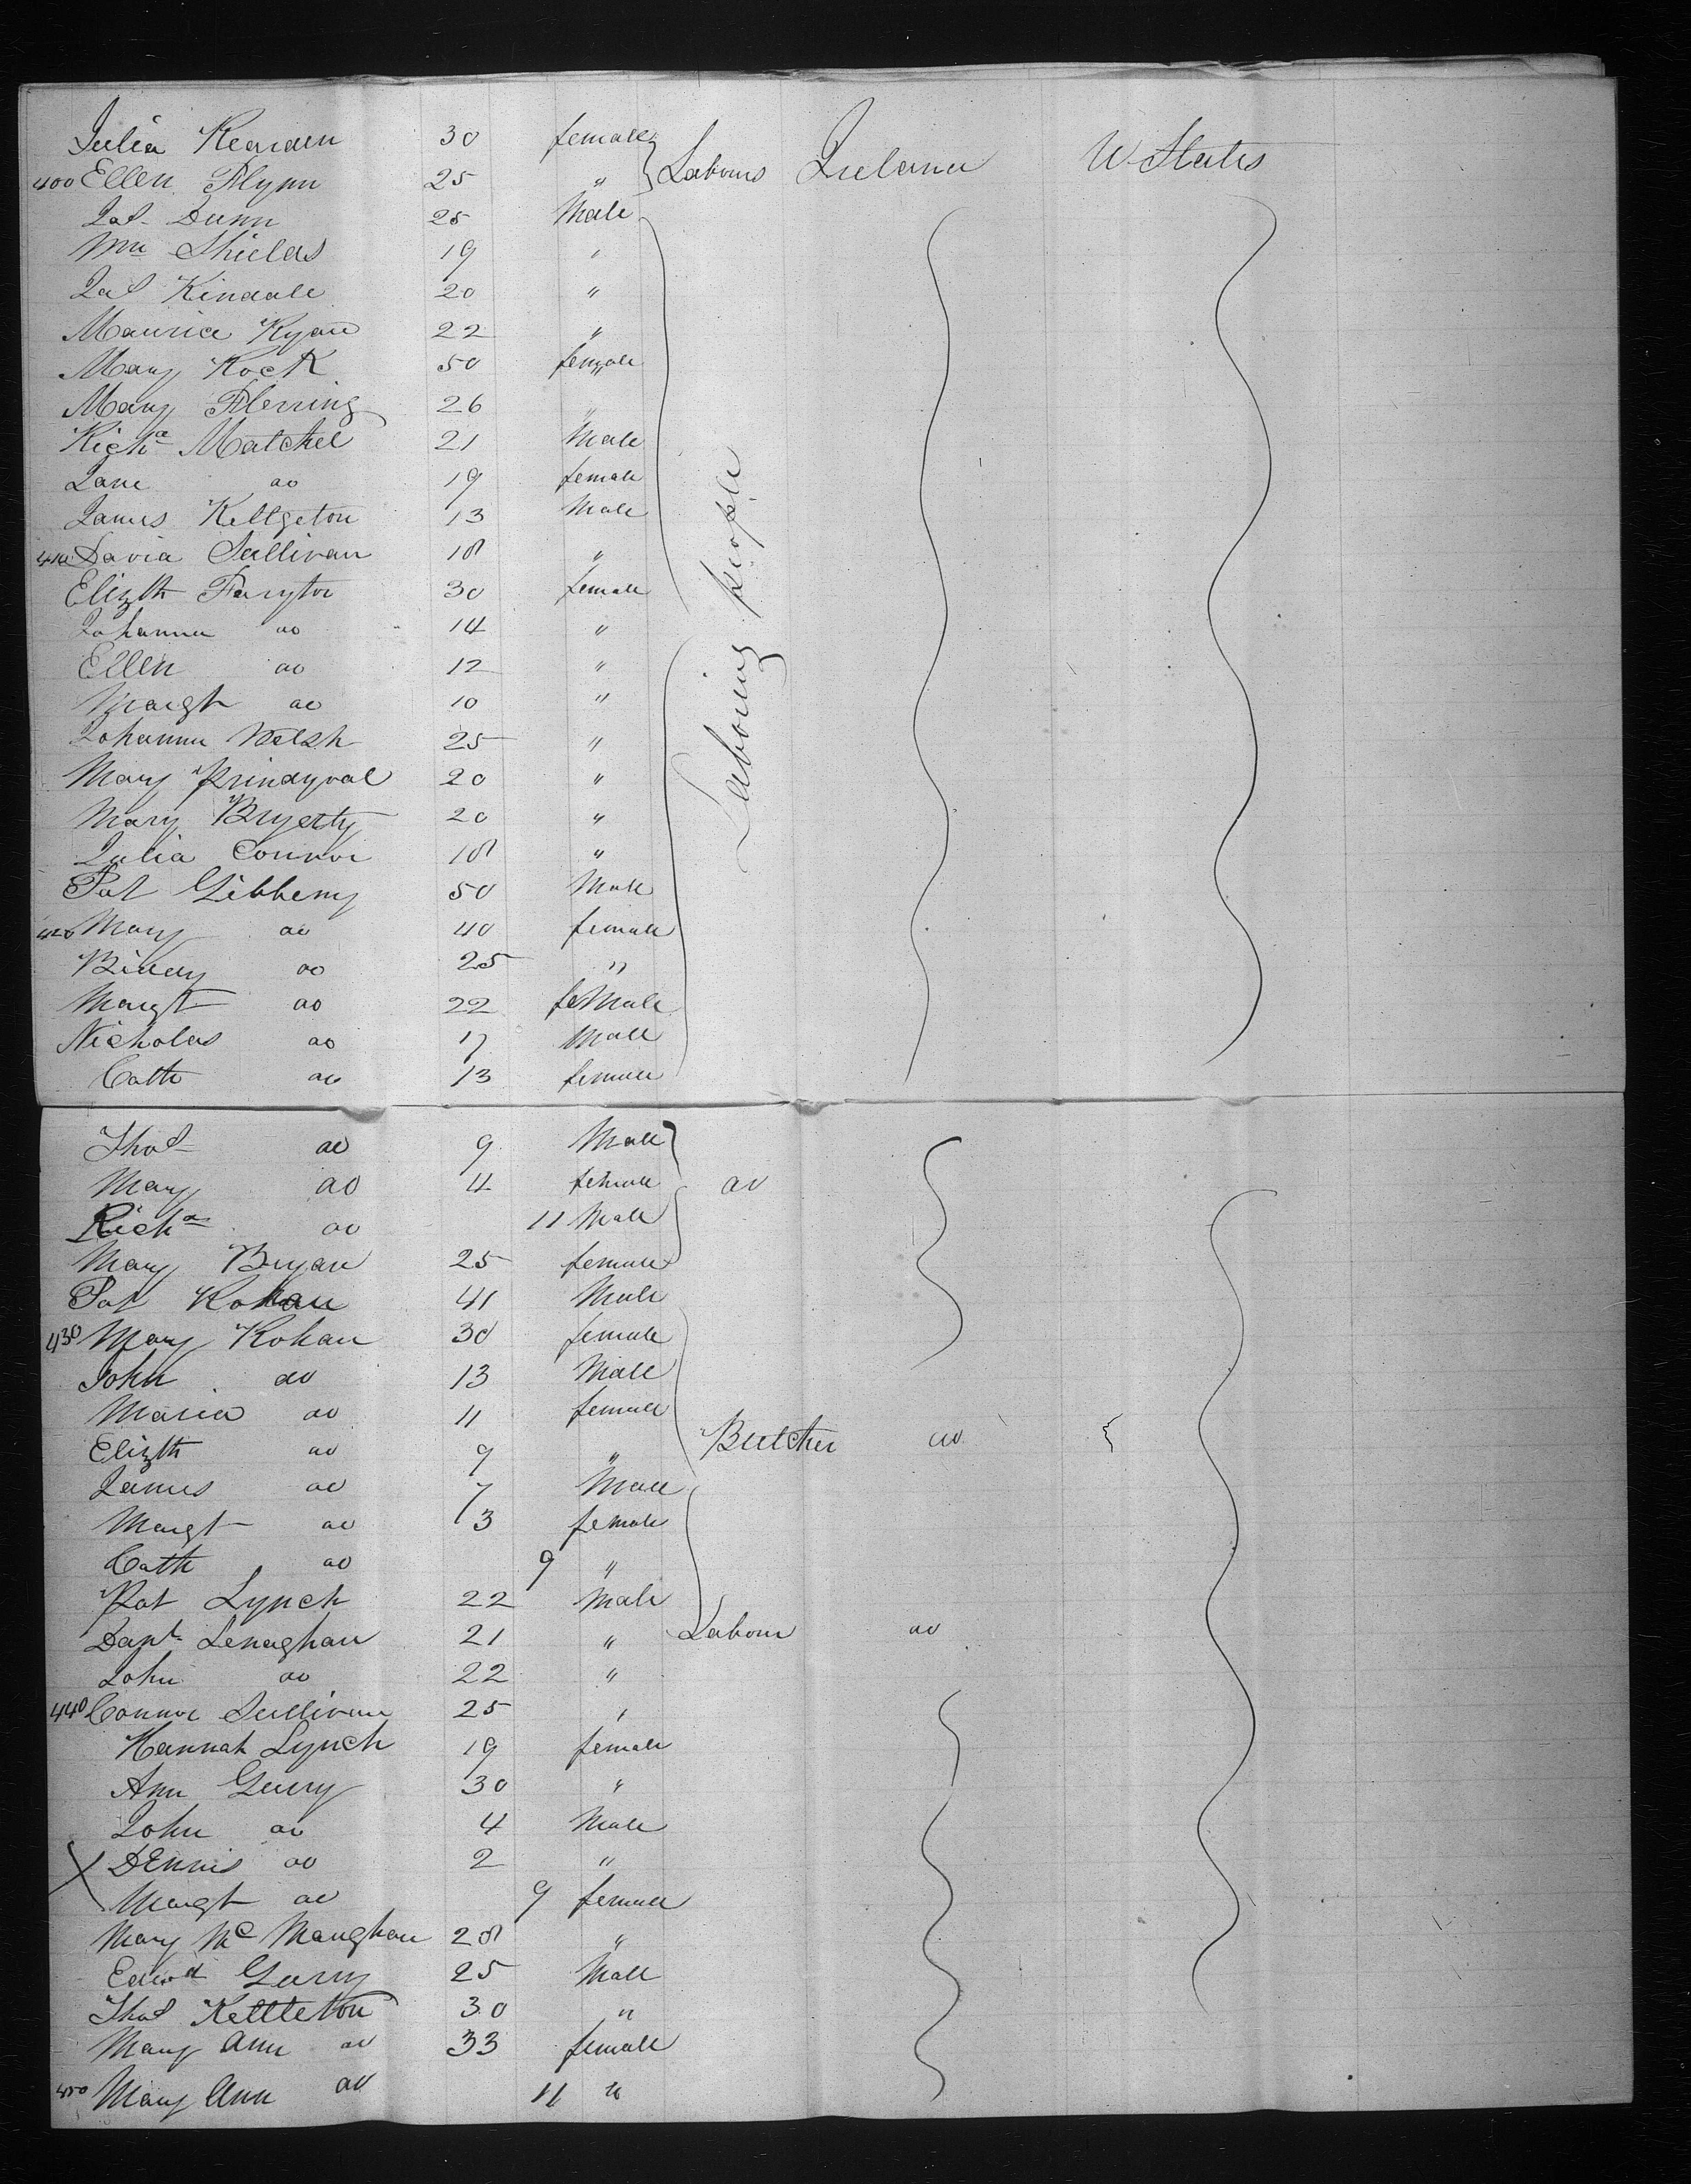 Julia Rearden 30 female } Labours Ireland U States
400 Ellen Flynn 25 "
Jas Dunn 25 Male
Wm Shields 19 "
Jas Kindale 20 "
Maurice Ryan 22 "
Mary Rock 50 female
Mary Fleming 26 "
Richd Matchel 21 Male
Jane do 19 female
James Kellgeton 13 Male
410 David Sullivan 18 "
Elizth 30 female
Johanna do 14 "
Ellen do 12 "
Margt do 10 "
Johanna Welsh 25 "
Mary Prindyval 20 "
Mary Bryerty 20 "
Julia Connor 18 "
Laboring people
Pat Gibbeny 50 Male
420 Mary do 40 female
Biddy do 25 "
Margt do 22 feMale
Nicholas do 17 Male
Cath do 13 female
Thos do 9 Male
Mary do 4 female do
Richd do 11 Male
Mary Bryan 25 female
Pat Rohan 41 Male
430 Mary Rohan 30 female
John do 13 Male
Maria do 11 female
Elizth do 9 " Butcher do
James do 7 Male
Margt do 3 female
Cath do 9 "
Pat Lynch 22 Male
Danl Lenaghan 21 " Labour do
John do 22 "
440 Connor Sullivan 25 "
Hannah Lynch 19 female
Ann Geary 30 "
John do 4 Male
X Dennis do 2 "
Margt do 9 female
Mary Mc Maughan 28 "
Edwd Geary 25 Male
Thos Kettleton 30 "
Mary Ann do 33 female
450 Mary Ann do 11 "